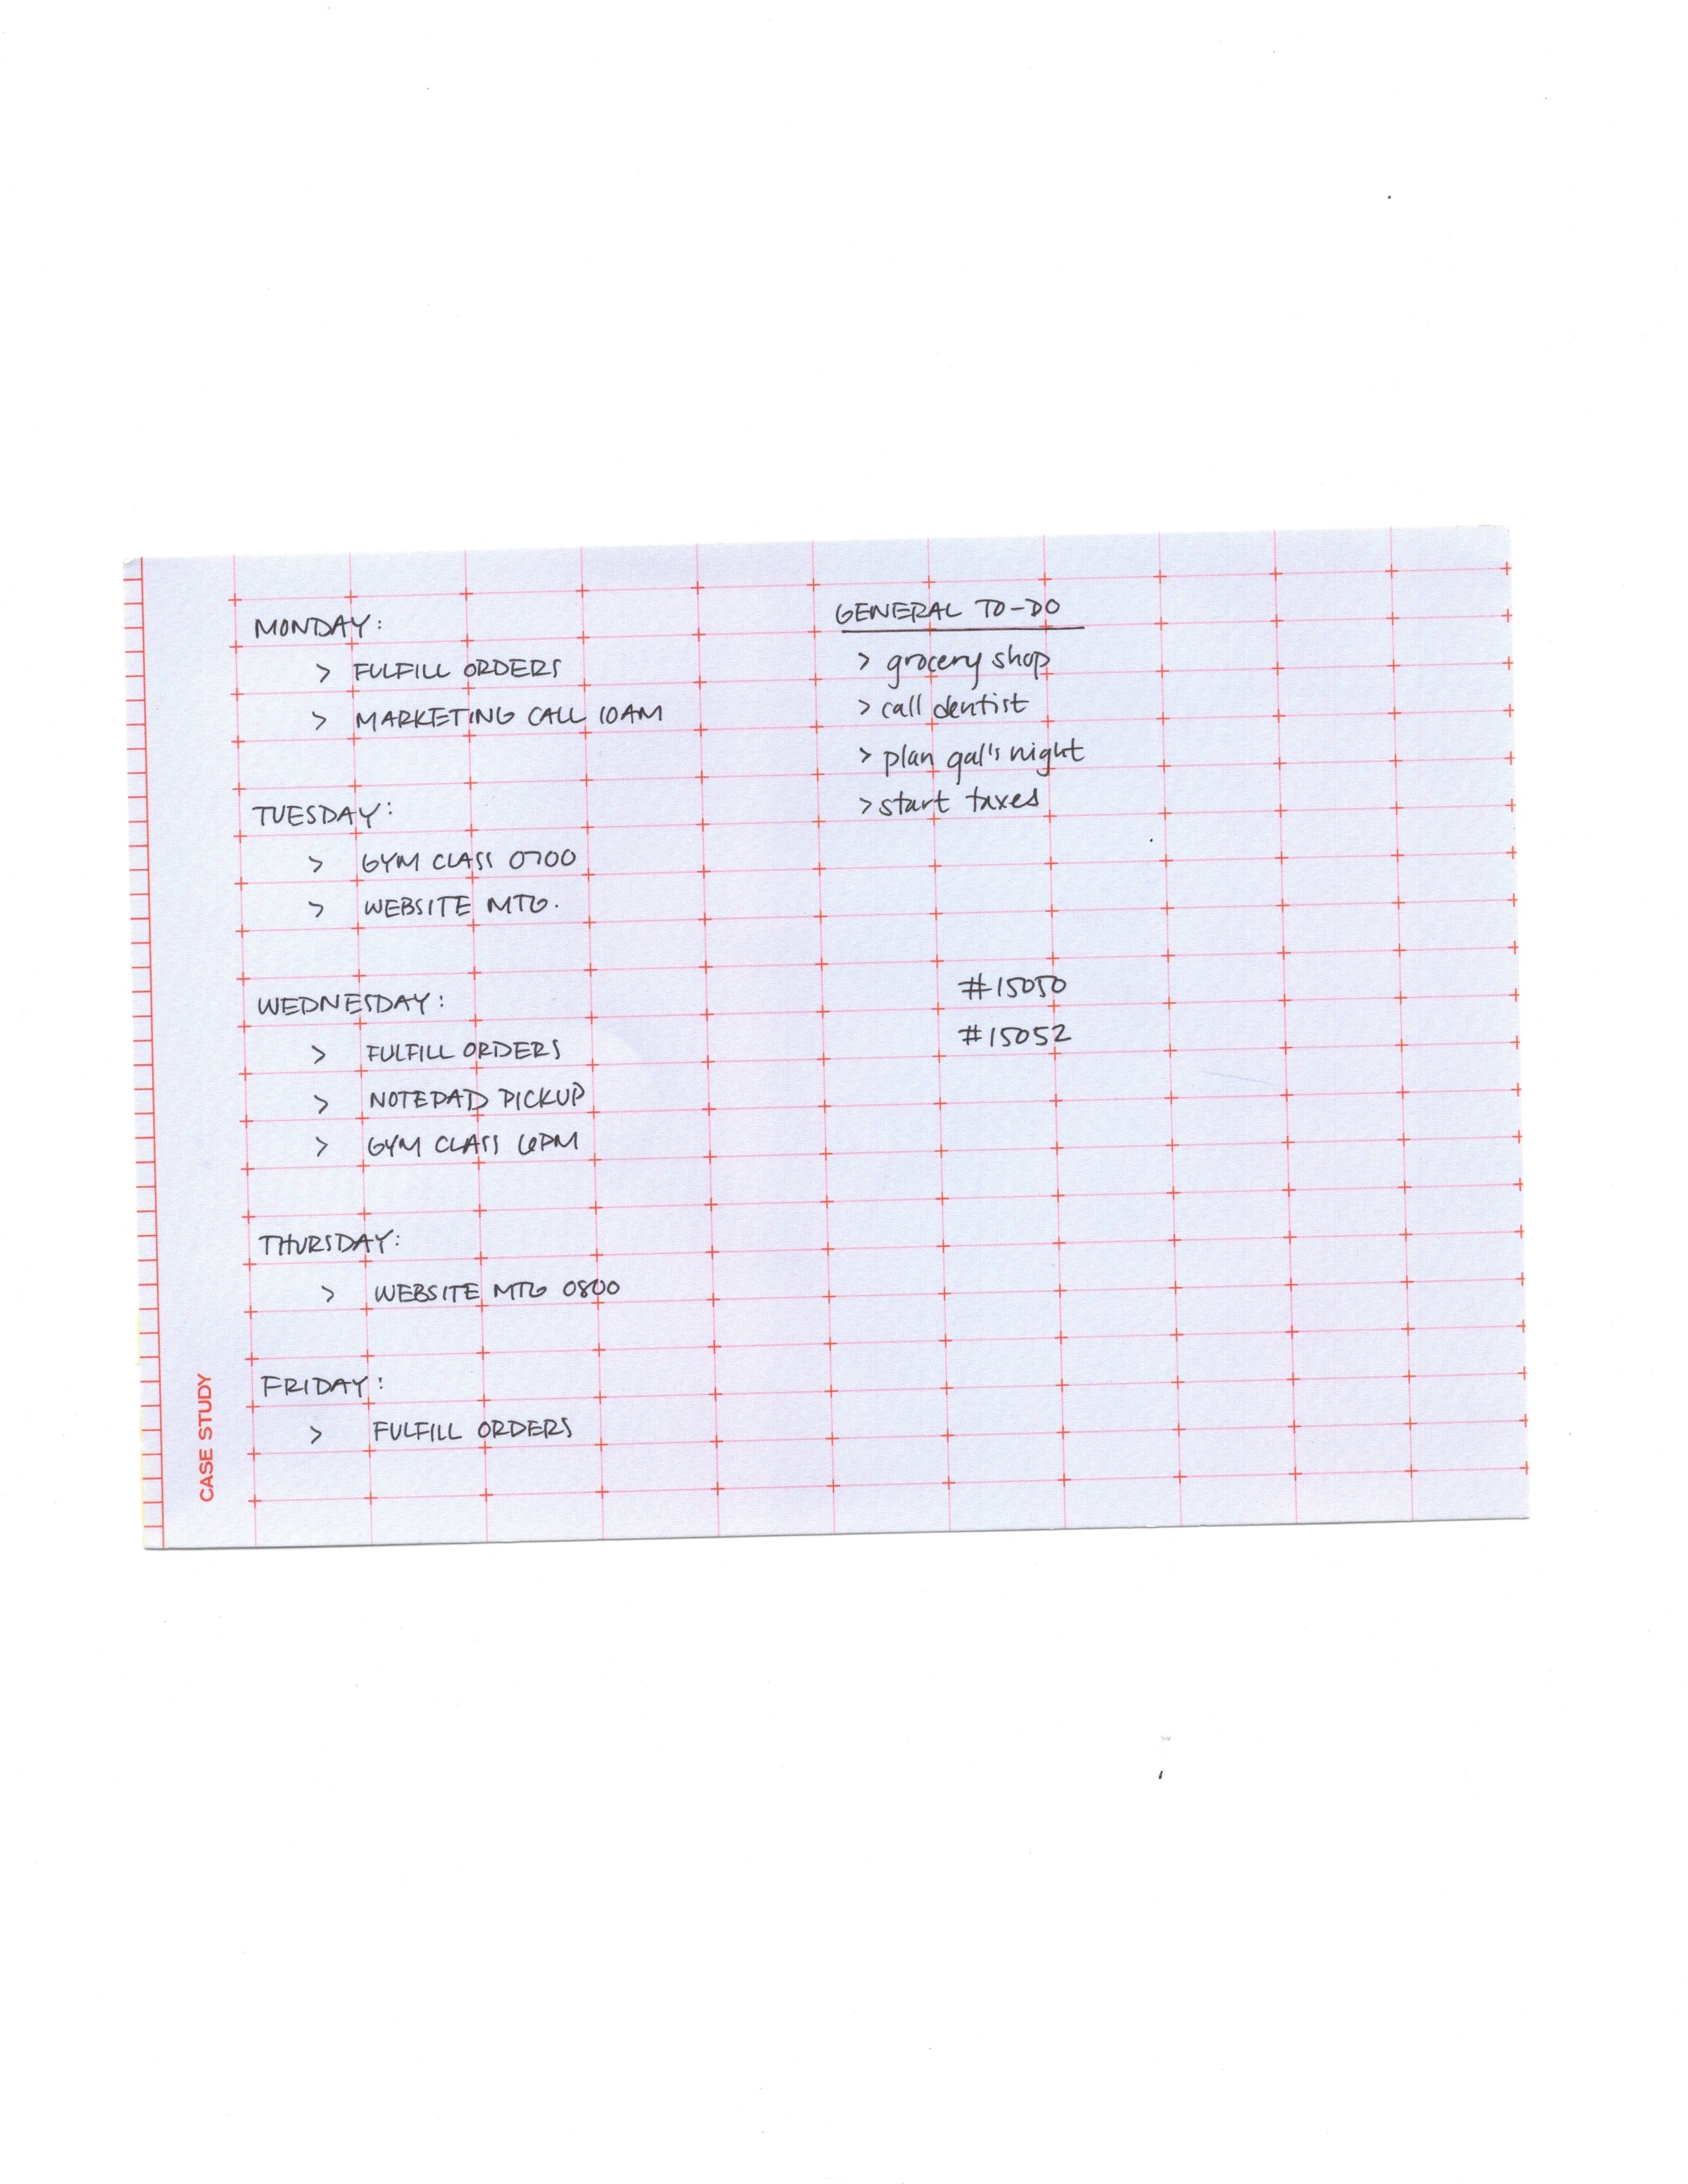 MONDAY:
> FULFILL ORDERS
> MARKETING CALL 10AM
TUESDAY:
> GYM CLASS 0700
> WEBSITE MTG.
WEDNESDAY:
> FULFILL ORDERS
> NOTEPAD PICKUP
> GYM CLASS 6PM
THURSDAY:
> WEBSITE MTG 0800
FRIDAY:
> FULFILL ORDERS
GENERAL TO-DO
> grocery shop
> call dentist
> plan gal's night
> start taxes
#15050
#15052
CASE STUDY